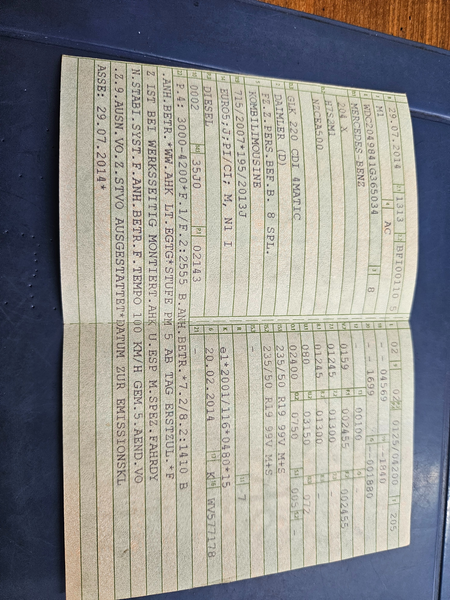 29.07.2014 1313 BFI00110 5
M1 AC
WDC2049841G365034 8
MERCEDES BENZ
204 X
H7S2M1
NZCEA500
GLK 220 CDI 4MATIC
DAIMLER (D)
FZ.Z.PERS.BEF.B. 8 SPL.
KOMBILIMOUSINE
715/2007*195/2013J
EURO5;J;PI/CI; M, N1 I
DIESEL
0002 35J0 02143
02 0125/04200 205
-- 04569 -1840
-- 1699 --001880
00100
0159 002455 002455
01245 01300 -
01245 01300 -
080 0150 072
02400 0750
235/50 R19 99V M+S
235/50 R19 99V M+S
-
- 7
e1*2001/116*0480*15
20.02.2014 K WV577178
P.4: 3000-4200*F.1/F.2:2555 B.ANH.BETR.*7.2/8.2:1410 B
.ANH.BETR.*WW.AHK LT.EGTG*STUFE PM 5 AB TAG ERSTZUL.*F
Z IST BEI WERKSSEITIG MONTIERT.AHK U.ESP M.SPEZ.FAHRDY
N.STABI-SYST.F.ANH.BETR.F.TEMPO 100 KM/H GEM.5.AEND.VO
.Z.9.AUSN.VO.Z.STVO AUSGESTATTET*DATUM ZUR EMISSIONSKL
ASSE: 29.07.2014*